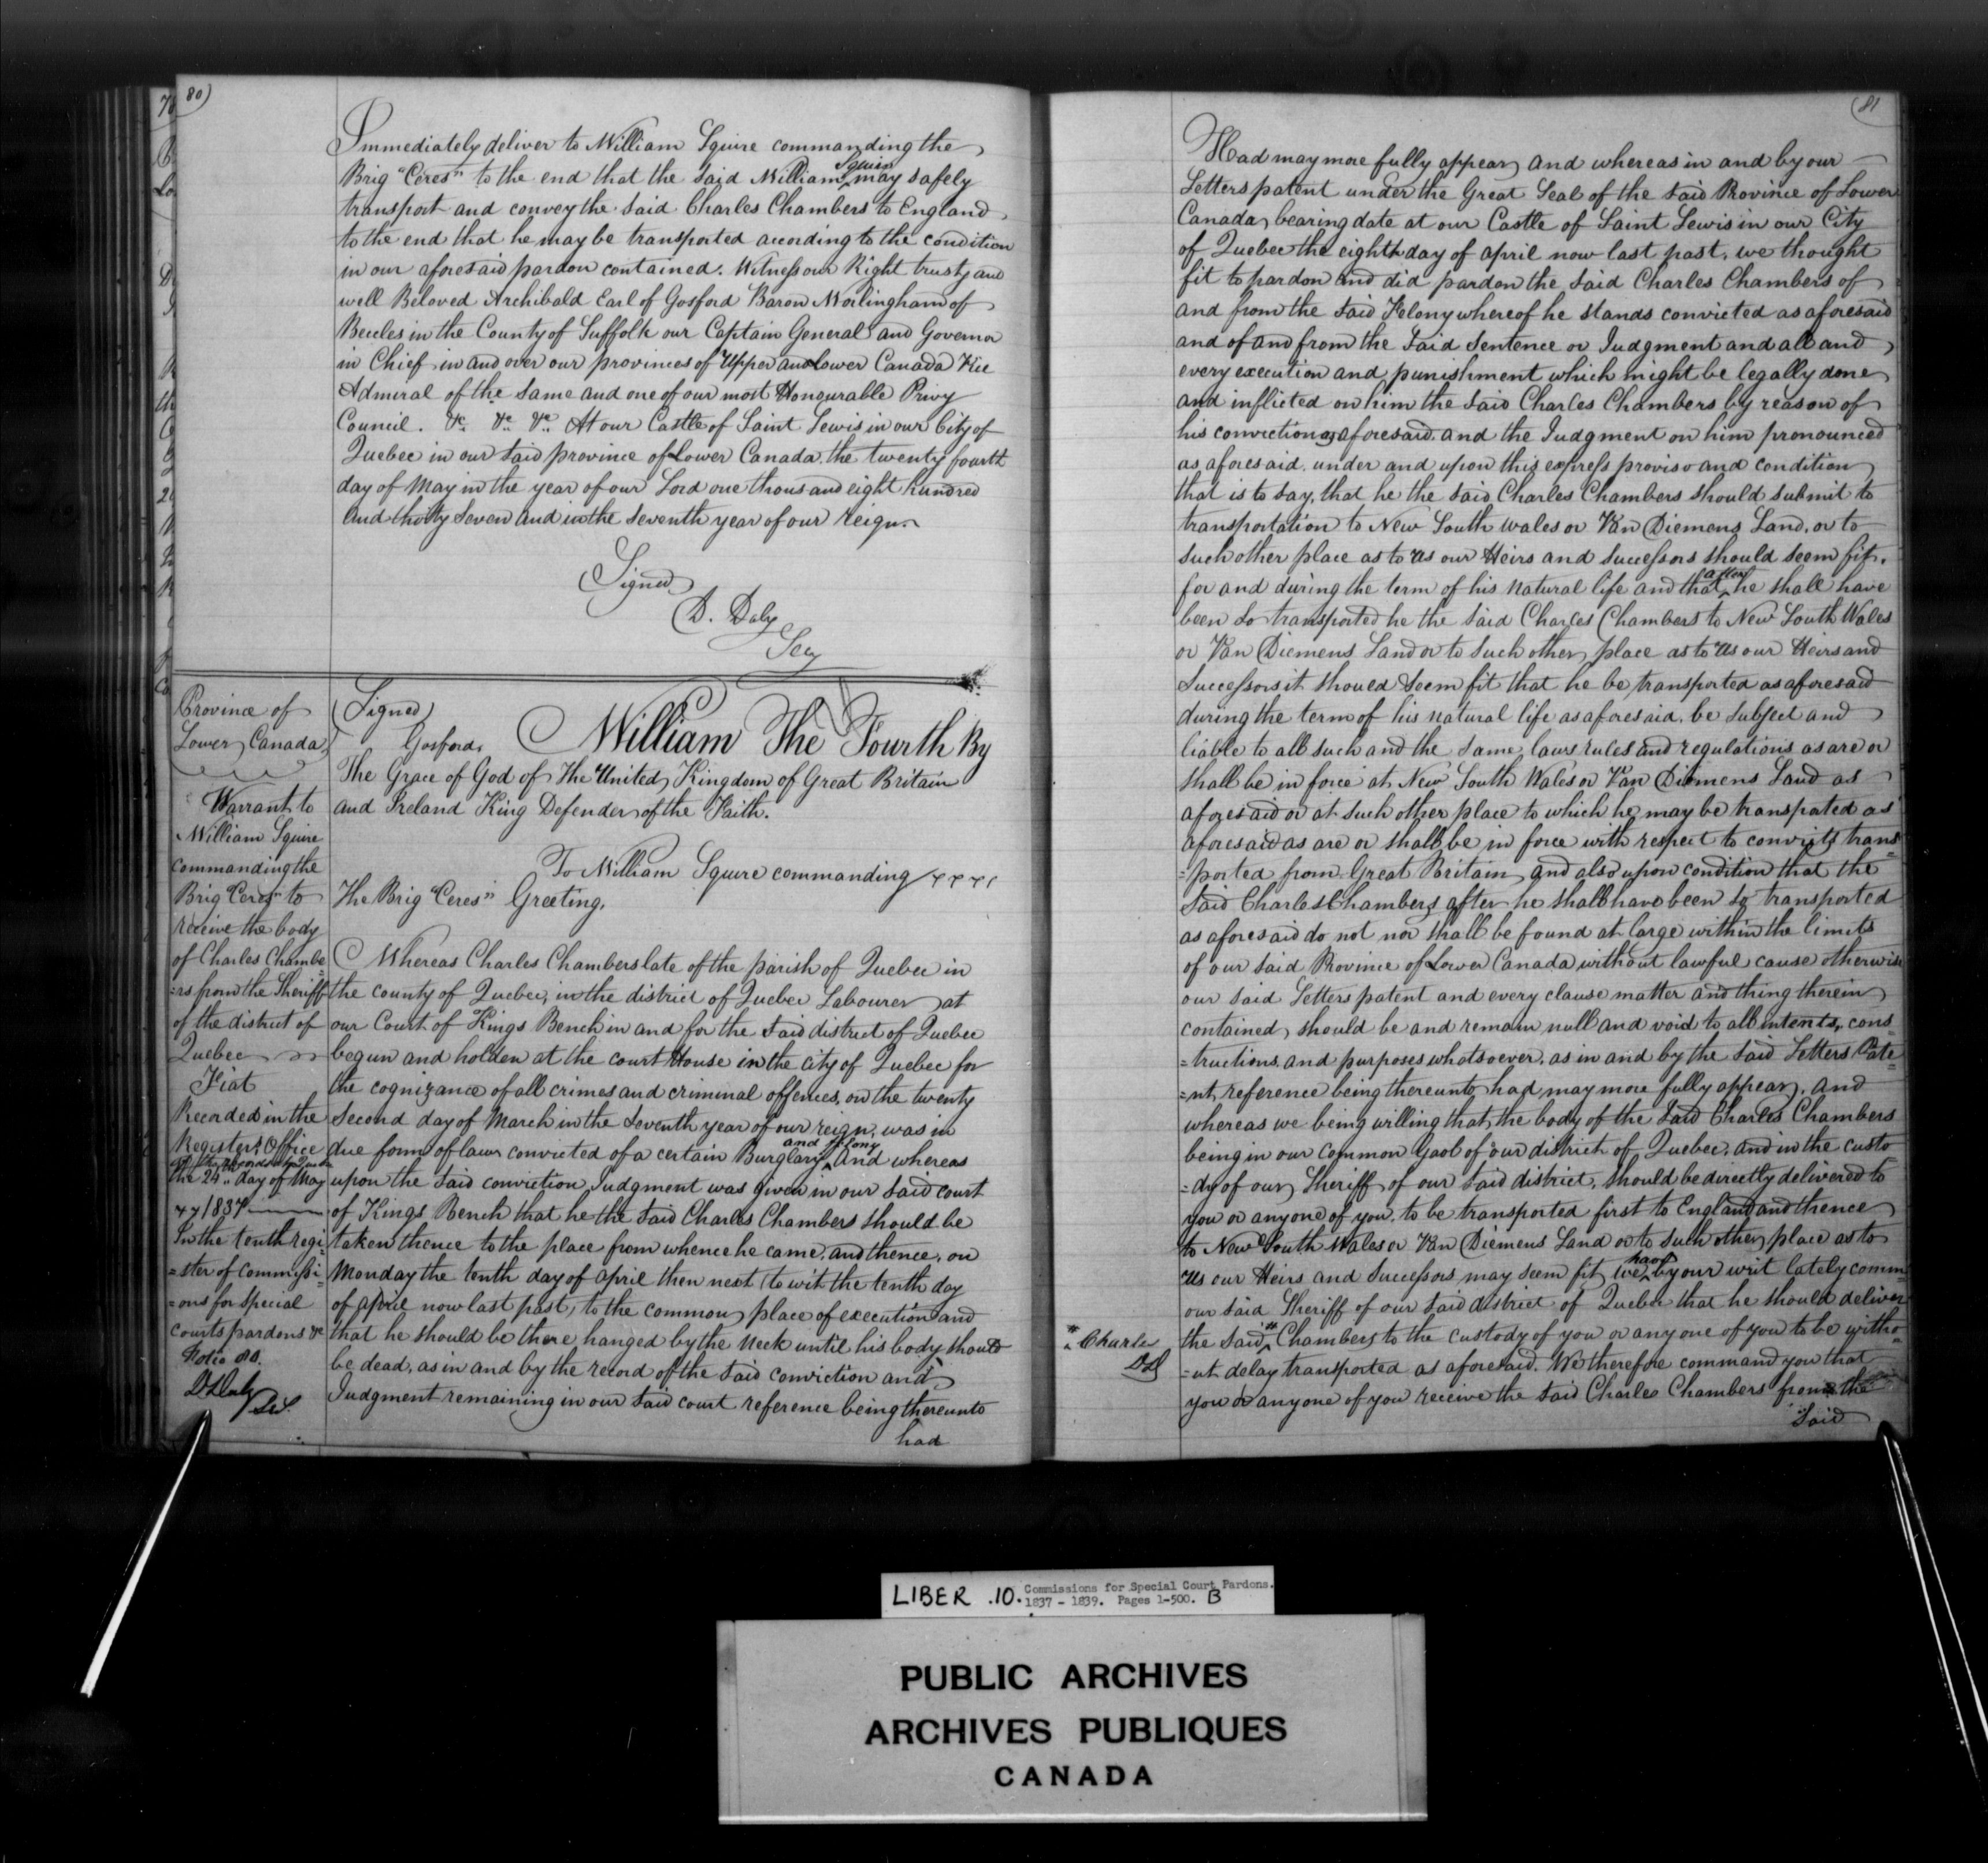 80)
Immediately deliver to William Squire commanding the
Brig "Ceres" to the end that the said William Squire may safely
transport and convey the said Charles Chambers to England
to the end that he may be transported according to the condition
in our aforesaid pardon contained. Witness our Right trusty and
well Beloved Archibald Earl of Gosford Baron Worlingham of
Beccles in the County of Suffolk our Captain General and Governor
in Chief in and over our provinces of Upper and Lower Canada Vice
Admiral of the same and one of our most Honourable Privy
Council. &c. &c. &c. At our Castle of Saint Lewis in our City of
Quebec in our said province of Lower Canada. the twenty fourth
day of May in the year of our Lord one thousand eight hundred
and thirty Seven and in the Seventh year of our reign.
(Signed)
D. Daly
Secy
Province of
Lower Canada
Warrant to
William Squire
commanding the
Brig "Ceres" to
receive the body
of Charles Chambe
=rs from the Sheriff
of the district of
Quebec
Fiat
Recorded in the
Registers Office
of the Records at Quebec
the 24" day of May
1837
In the tenth regi=
=ster of Commissi=
=ons for Special
Courts pardons &c
folio 80.
D Daly
(Signed)
Gosford.
William The Fourth By
The Grace of God of The United Kingdom of Great Britain
and Ireland King Defender of the Faith.
To William Squire commanding
The Brig "Ceres" Greeting.
Whereas Charles Chambers late of the parish of Quebec in
the county of Quebec, in the district of Quebec Labourer at
our Court of Kings Bench in and for the said district of Quebec
begun and holden at the court House in the city of Quebec for
the cognizance of all crimes and criminal offences, on the twenty
Second day of March in the Seventh year of our reign, was in
due form of law convicted of a certain Burglary and felony And whereas
upon the said conviction Judgment was given in our said court
of Kings Bench that he the said Charles Chambers should be
taken thence to the place from whence he came, and thence, on
Monday the tenth day of April then next to wit the tenth day
of april now last past, to the common place of execution and
that he should be there hanged by the neck until his body should
be dead, as in and by the record of the said conviction and
Judgment remaining in our said court reference being thereunto
had
(81
Had may more fully appear and whereas in and by our
Letters patent under the Great Seal of the said Province of Lower
Canada, bearing date at our Castle of Saint Lewis in our City
of Quebec the eighth day of april now last past, we thought
fit to pardon and did pardon the said Charles Chambers of
and from the said Felony whereof he stands convicted as aforesaid
and of and from the said Sentence or Judgment and all and
every execution and punishment which might be legally done
and inflicted on him the said Charles Chambers by reason of
his conviction as aforesaid. and the Judgment on him pronounced
as aforesaid. under and upon this express proviso and condition
that is to say, that he the said Charles Chambers should submit to
transportation to New South Wales or Van Diemens Land, or to
such other place as to us our Heirs and successors should seem fit.
for and during the term of his natural life and that after he shall have
been so transported he the said Charles Chambers to New South Wales
or Van Diemens Land or to such other place as to us our Heirs and
Successors it should seem fit that he be transported as aforesaid
during the term of his natural life as aforesaid, be subject and
liable to all such and the same laws rules and regulations as are or
shall be in force at New South Wales or Van Diemens Land as
aforesaid or at such other place to which he may be transpated as
aforesaid as are or shall be in force with respect to convicts trans=
=ported from Great Britain and also upon condition that the
said Charles Chambers after he shall have been so transported
as aforesaid do not nor shall be found at large within the limits
of our said Province of Lower Canada without lawful cause otherwise
our said Letters patent and every clause matter and thing therein
contained, should be and remain null and void to all intents, cons=
=tructions, and purposes whatsoever, as in and by the said Letters Pate=
=nt, reference being thereunto had may more fully appear, and
whereas we being willing that the body of the said Charles Chambers
being in our Common Gaol of our district of Quebec, and in the custo=
=dy of our Sheriff of our said district, should be directly delivered to
you or any one of you. to be transported first to England and thence
to New South Wales or Van Diemens Land or to such other place as to
us our Heirs and successors may seem fit, we have by our writ lately comm=
our said Sheriff of our said district of Quebec that he should deliver
* Charles
DD
the said * Chambers to the custody of you or any one of you to be witho=
=ut delay transported as aforesaid. We therefore command you that
you or any one of you receive the said Charles Chambers from the
said
LIBER .10. Commissions for Special Court Pardons.
1837 - 1839. Pages 1-500. B
PUBLIC ARCHIVES
ARCHIVES PUBLIQUES
CANADA